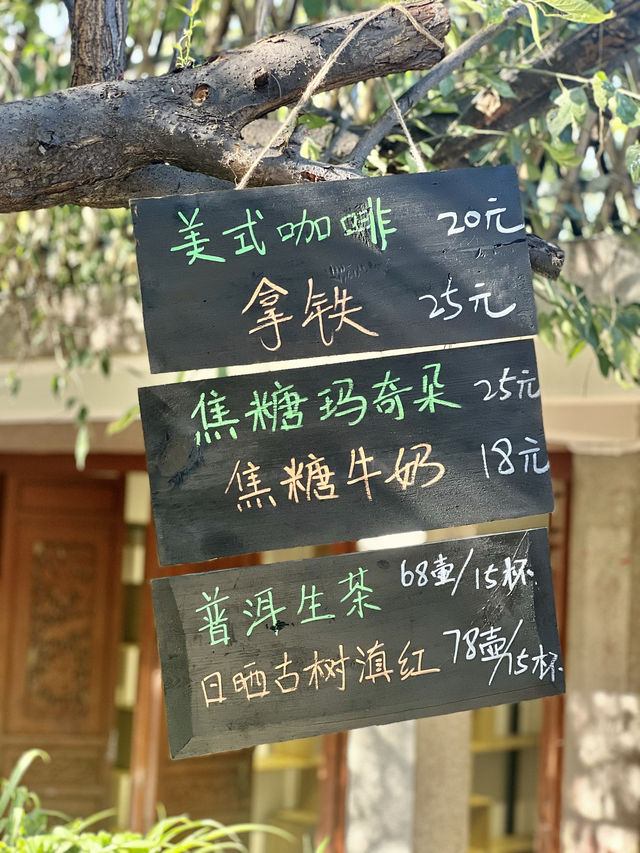 美式咖啡 20元
拿铁 25元
焦糖玛奇朵 25元
焦糖牛奶 18元
普洱生茶 68壶/15杯
日晒古树滇红 78壶/15杯